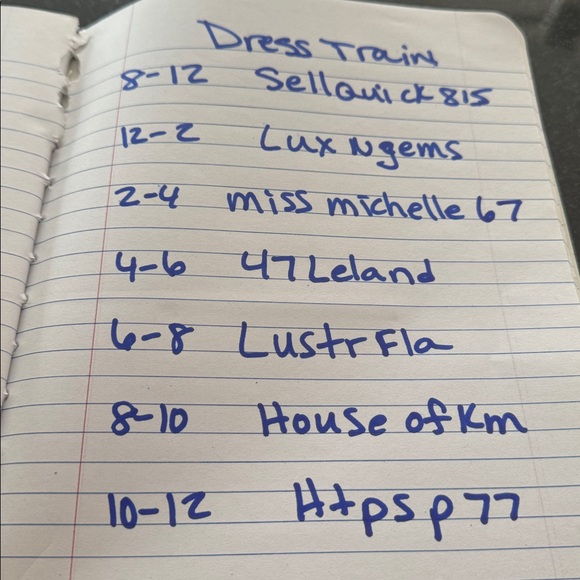 Dress Train
8-12 Sellquick815
12-2 Lux Ngems
2-4 miss michelle 67
4-6 47Leland
6-8 Lustr Fla
8-10 House of Km
10-12 Htpsp77